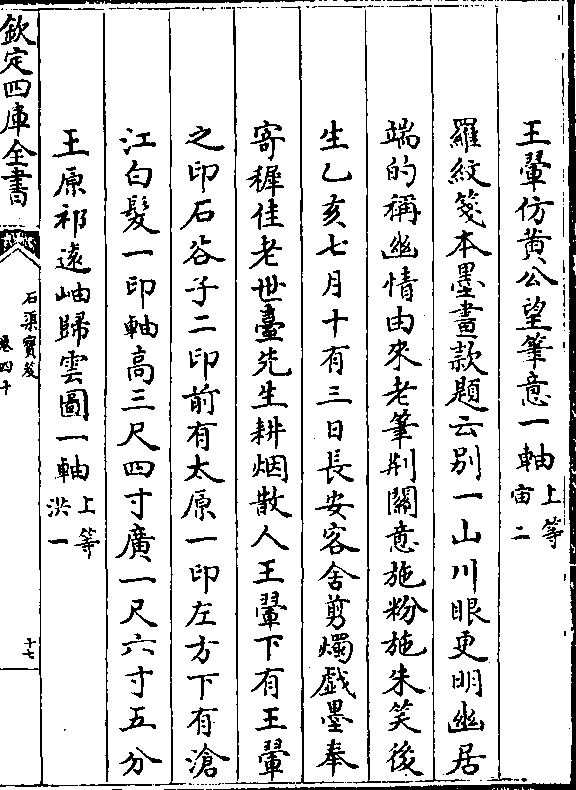 王翬仿黄公望筆意一軸上等宙二
羅紋箋本墨畫款題云别一山川眼更明幽居
端的稱幽情由來老筆荆關意施粉施朱笑後
生乙亥七月十有三日長安客舍剪燭戯墨奉
寄穉佳老世臺先生耕烟散人王翬下有王翬
之印石谷子二印前有太原一印左方下有滄
江白髮一印軸高三尺四寸廣一尺六寸五分
王原祁遠岫歸雲圖一軸上等洪一
欽定四庫全書
石渠寳笈
卷四十
十七